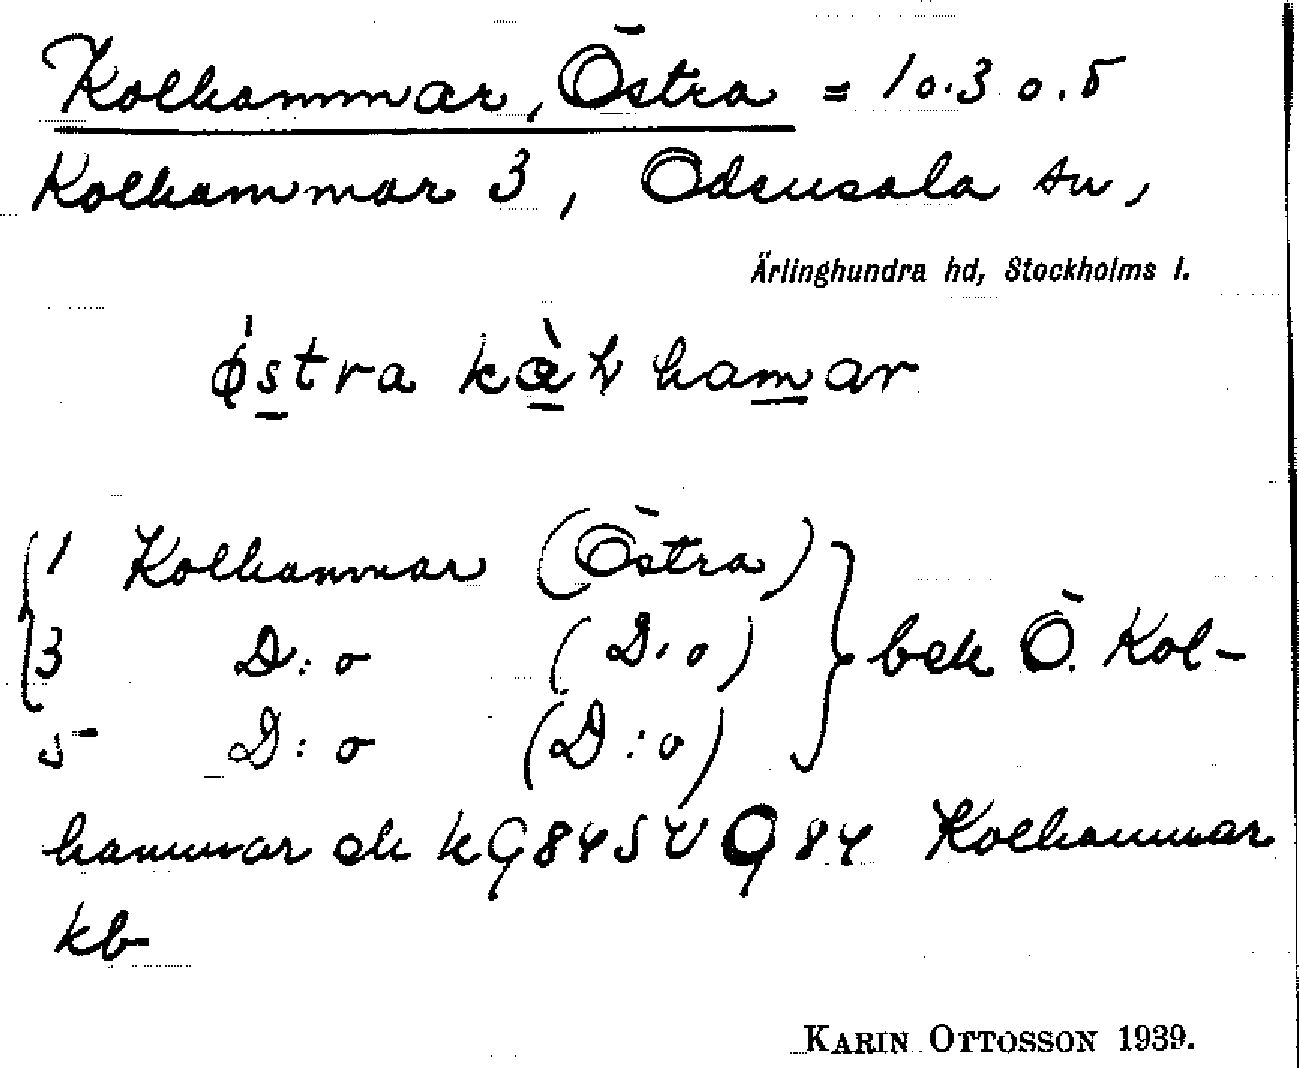 Kolhammar, Östra = 1 o. 3 o. 5
Kolhammar 3, Odensala sn,
Ärlinghundra hd, Stockholms l.
östra kàɫhamar
1 Kolhammar (Östra)
3 D:o (D:o) bek Ö. Kol-
5 D:o (D:o)
hammar ek k G 84 SV G 84 Kolhammar
kb
KARIN OTTOSSON 1939.